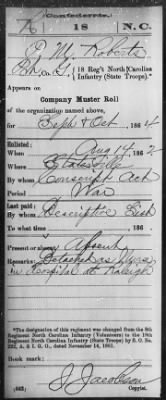 Confederate.
18 N.C.
P M Roberts
Co. G, 18 Reg't North Carolina
Infantry (State Troops).*
Appears on
Company Muster Roll
of the organization named above,
for Sept & Oct, 1864
Enlisted:
When Aug 14, 1862
Where Statesville
By whom Conscript Act
Period War
Last paid:
By whom Descriptive List
To what time , 186 .
Present or absent Absent
Remarks: Detached as Nurse
in Hospital at Raleigh
*The designation of this regiment was changed from the 8th
Regiment North Carolina Infantry (Volunteers) to the 18th
Regiment North Carolina Infantry (State Troops) by S. O. No.
222, A. & I. G. O., dated November 14, 1861.
Book mark:
(642) J. Jacobson
Copyist.